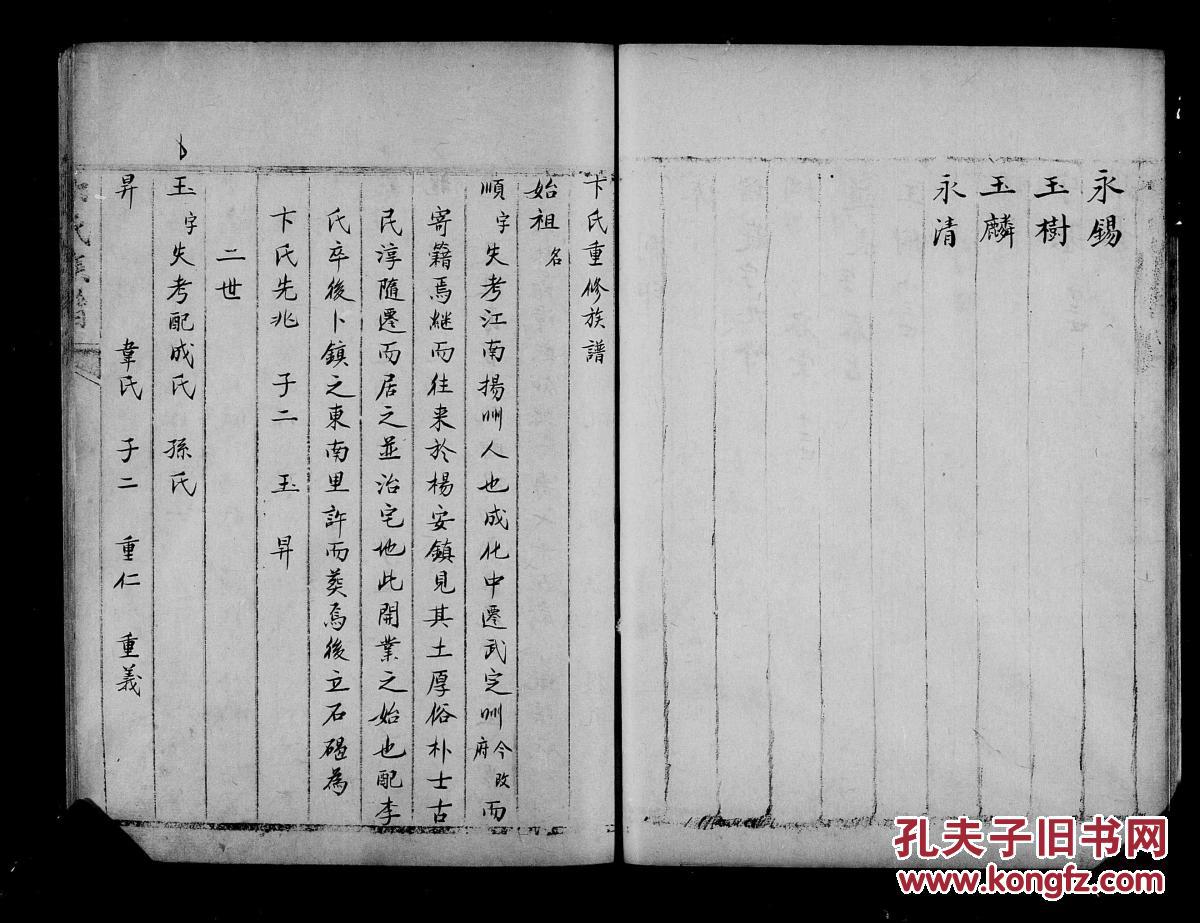 永錫
玉樹
玉麟
永清
卞氏重修族譜
始祖名
順字失考江南揚州人也成化中遷武定州今改府而
寄籍焉継而往来於楊安鎮見其土厚俗朴士古
民淳隨遷而居之並治宅地此開業之始也配李
氏卒後卜鎮之東南里許而葬焉後立石碣為
卞氏先兆 子二 玉 昇
二世
玉字失考配成氏 孫氏
昇 韋氏 子二 重仁 重義
孔夫子旧书网
www.kongfz.com